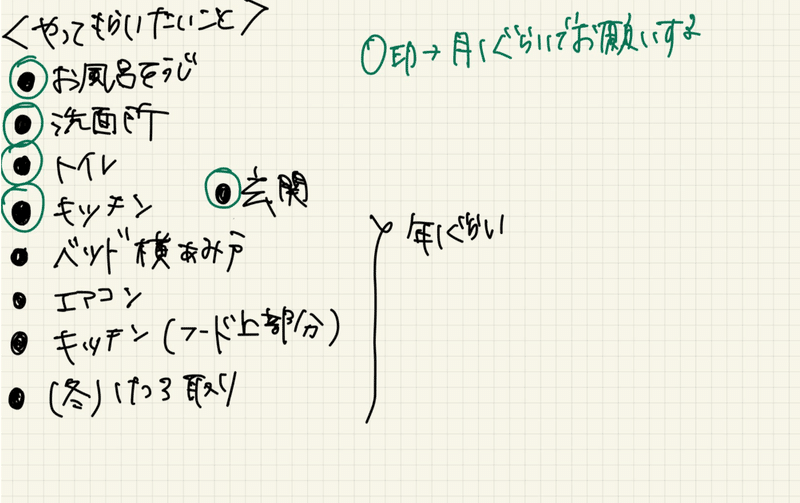 <やってもらいたいこと>
○印→月1ぐらいでお願いする
お風呂そうじ
洗面所
トイレ
キッチン
玄関
ベッド横あみ戸
年1ぐらい
エアコン
キッチン(フード上部分)
(冬)けつろ取り